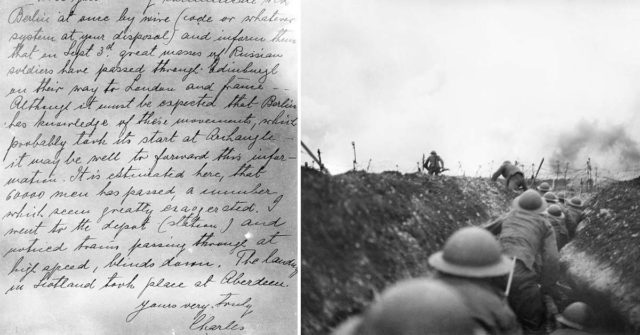 Berlin at once by wire (code or whatever
system at your disposal) and inform them
that on Sept 3rd. great masses of Russian
soldiers have passed through Edinburgh
on their way to London and France --
Although it must be expected that Berlin
has knowledge of these movements, which
probably took its start at Archangle --
it may be well to forward this infor-
mation. It is estimated here, that
60000 men has passed, a number
which seem greatly exaggerated. I
went to the depot (station) and
noticed trains passing through at
high speed, blinds down. The landing
in Scotland took place at Aberdeen.
yours very truly
Charles